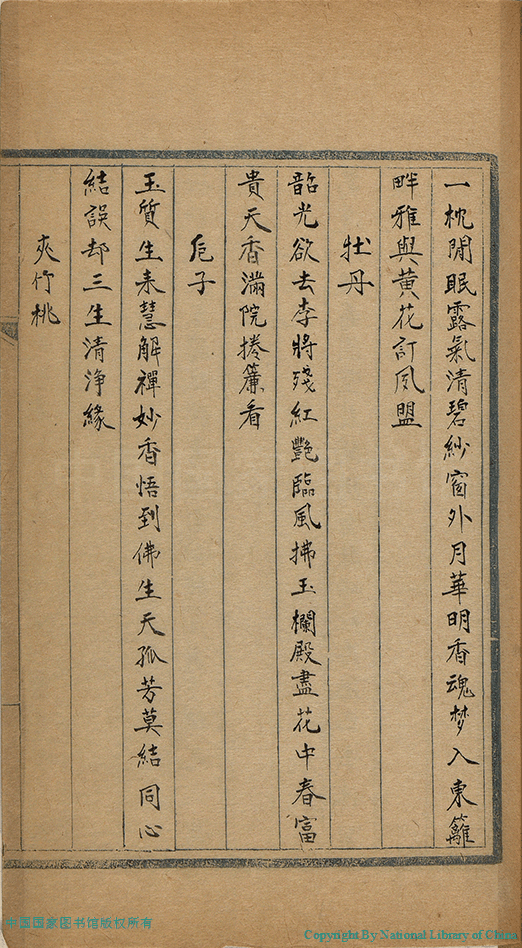 一枕閒眠露氣清碧紗窗外月華明香魂梦入東籬
畔雅與黃花訂夙盟
牡丹
韶光欲去李將殘紅艷臨風拂玉欄殿盡花中春富
貴天香滿院捲簾看
卮子
玉質生来慧解禪妙香悟到佛生天孤芳莫結同心
結誤却三生清浄緣
夾竹桃
中国国家图书馆版权所有
Copyright By National Library of China